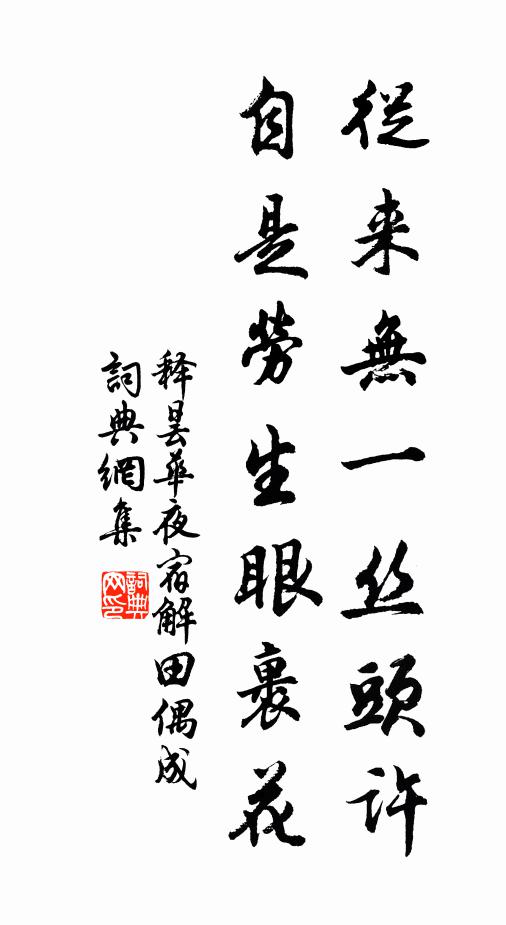 從来無一丝頭許
自是勞生眼裹花
释曇華夜宿解田偶成
詞典網集
詞典网印